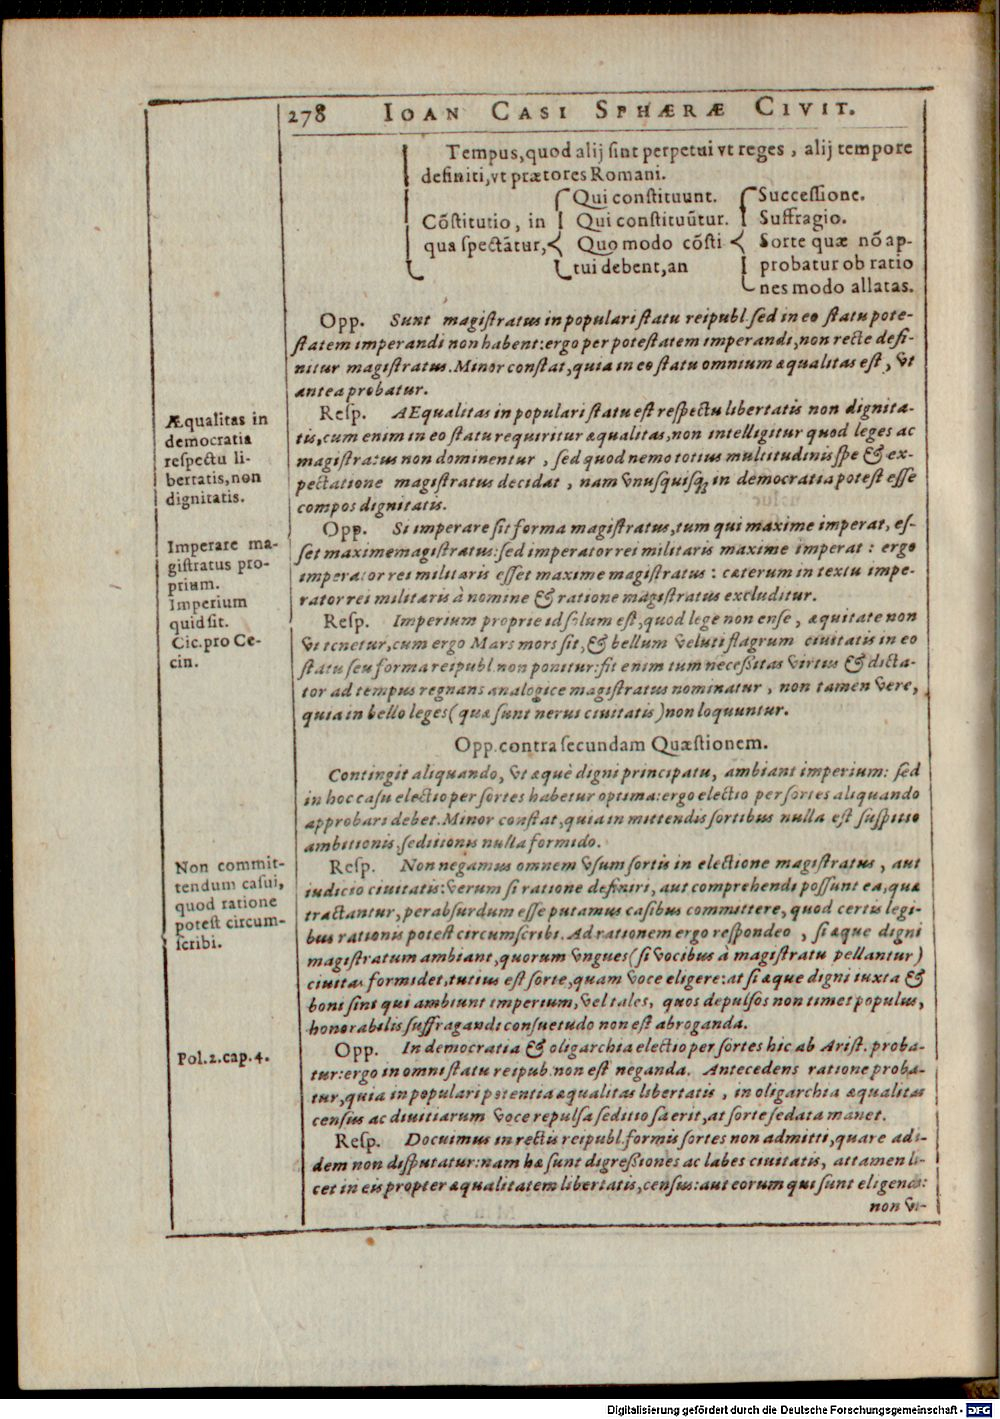 278 IOAN CASI SPHÆRÆ CIVIT.
Tempus, quod alij sint perpetui vt reges, alij tempore
definiti, vt prætores Romani.
Cōstitutio, in
qua spectātur,
Qui constituunt.
Qui constituūtur.
Quo modo cōsti
tui debent, an
Successione.
Suffragio.
Sorte quæ nō ap-
probatur ob ratio
nes modo allatas.
Opp. Sunt magistratus in populari statu reipubl. sed in eo statu pote-
statem imperandi non habent: ergo per potestatem imperandi, non recte defi-
nitur magistratus. Minor constat, quia in eo statu omnium æqualitas est, vt
antea probatur.
Æqualitas in
democratia
respectu li-
bertatis, non
dignitatis.
Resp. AEqualitas in populari statu est respectu libertatis non dignita-
tis, cum enim in eo statu requiritur æqualitas, non intelligitur quod leges ac
magistratus non dominentur, sed quod nemo totius multitudinis spe & ex-
pectatione magistratus decidat, nam vnusquisq; in democratia potest esse
compos dignitatis.
Imperare ma-
gistratus pro-
prium.
Imperium
quid sit.
Cic. pro Ce-
cin.
Opp. Si imperare sit forma magistratus, tum qui maxime imperat, es-
set maxime magistratus: sed imperator rei militaris maxime imperat: ergo
imperator rei militaris esset maxime magistratus: cæterum in textu impe-
rator rei militaris à nomine & ratione magistratus excluditur.
Resp. Imperium proprie id solum est, quod lege non ense, æquitate non
vi tenetur, cum ergo Mars mors sit, & bellum veluti flagrum ciuitatis in eo
statu seu forma reipubl. non ponitur: sit enim tum necessitas virtus & dicta-
tor ad tempus regnans analogice magistratus nominatur, non tamen vere,
quia in bello leges (quæ sunt nerui ciuitatis) non loquuntur.
Opp. contra secundam Quæstionem.
Contingit aliquando, vt æquè digni principatu, ambiant imperium: sed
in hoc casu electio per sortes habetur optima: ergo electio per sortes aliquando
approbari debet. Minor constat, quia in mittendis sortibus nulla est suspitio
ambitionis, seditionis nulla formido.
Non commit-
tendum casui,
quod ratione
potest circum-
scribi.
Resp. Non negamus omnem vsum sortis in electione magistratus, aut
iudicio ciuitatis: verum si ratione definiri, aut comprehendi possunt ea, quæ
tractantur, perabsurdum esse putamus casibus committere, quod certis legi-
bus rationis potest circumscribi. Ad rationem ergo respondeo, si æque digni
magistratum ambiant, quorum vngues (si vocibus à magistratu pellantur)
ciuitas formidet, tutius est sorte, quam voce eligere: at si æque digni iuxta &
boni sint qui ambiunt imperium, vel tales, quos depulsos non timet populus,
honorabilis suffragandi consuetudo non est abroganda.
Pol. 2. cap. 4.
Opp. In democratia & oligarchia electio per sortes hic ab Arist. proba-
tur: ergo in omni statu reipub. non est neganda. Antecedens ratione proba-
tur, quia in populari potentia æqualitas libertatis, in oligarchia æqualitas
census ac diuitiarum voce repulsa seditiosa erit, at sorte sedata manet.
Resp. Docuimus in rectis reipubl. formis sortes non admitti, quare ad i-
dem non disputatur: nam hæ sunt digressiones ac labes ciuitatis, attamen li-
cet in eis propter æqualitatem libertatis, census: aut eorum qui sunt eligendi:
non vi-
Digitalisierung gefördert durch die Deutsche Forschungsgemeinschaft - DFG